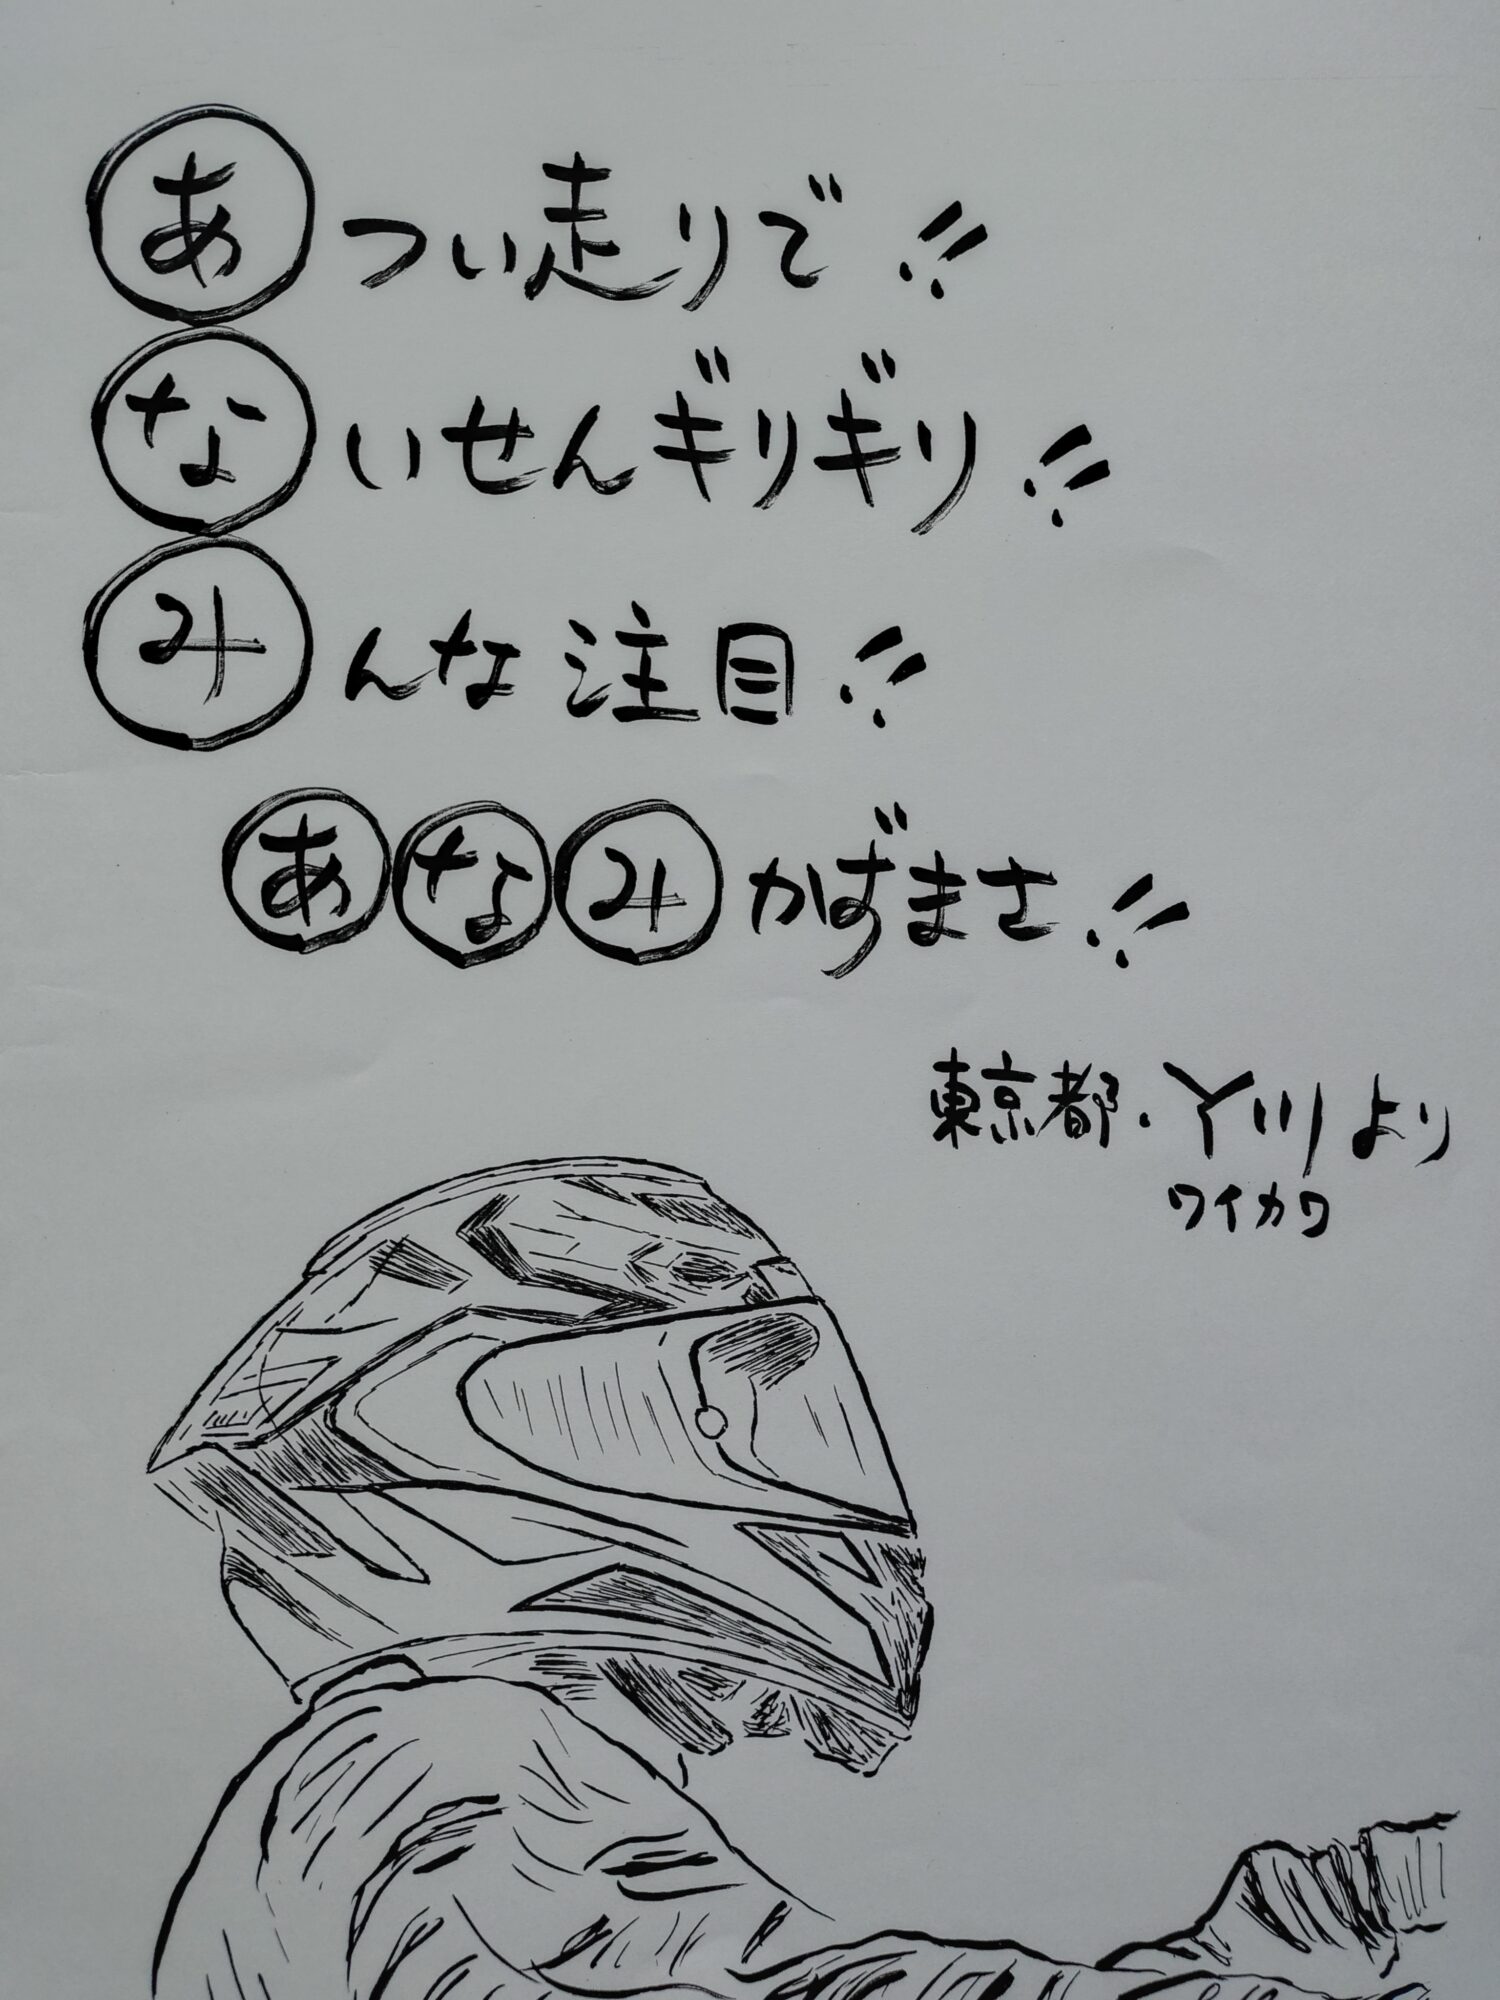 あつい走りで!!
ないせんギリギリ!!
みんな注目!!
あなみかずまさ!!
東京都・丫川より
ワイカワ